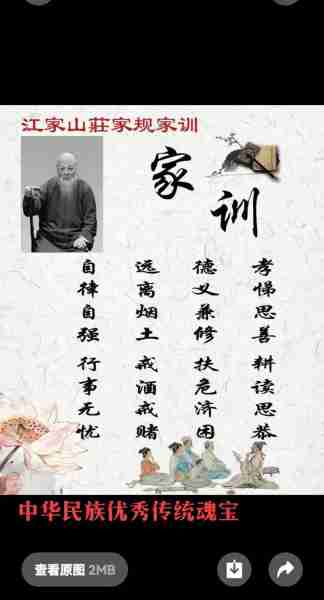 江家山莊家规家训
家训
孝悌思善
耕读思恭
德义兼修
扶危济困
远离烟土
戒酒戒赌
自律自强
行事无忧
中华民族优秀传统魂宝
查看原图 2MB